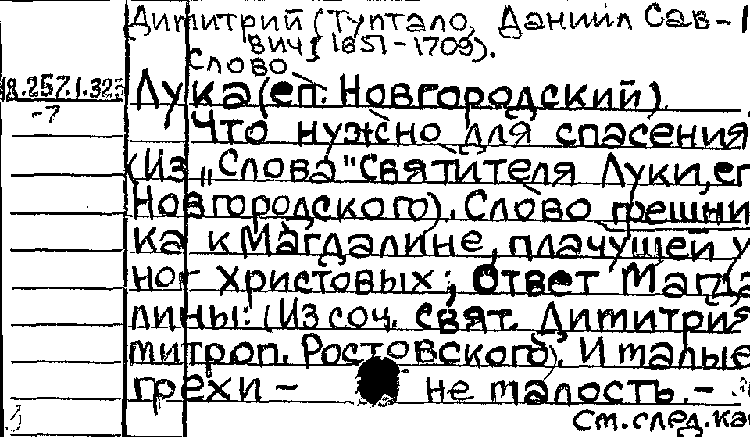 Димитрий (Туптало, Даниил Сав-
вич; 1651-1709).
Слово
18.257.1.323 Лука (еп. Новгородский).
-7 Что нужно для спасения
(Из „Слова" святителя Луки, еп
Новгородского). Слово грешни
ка к Магдалине, плачущей у
ног Христовых; Ответ Магда
лины: (Из соч. свят. Димитрия
митроп. Ростовского). И малые
грехи - не малость. -
См. след. ка